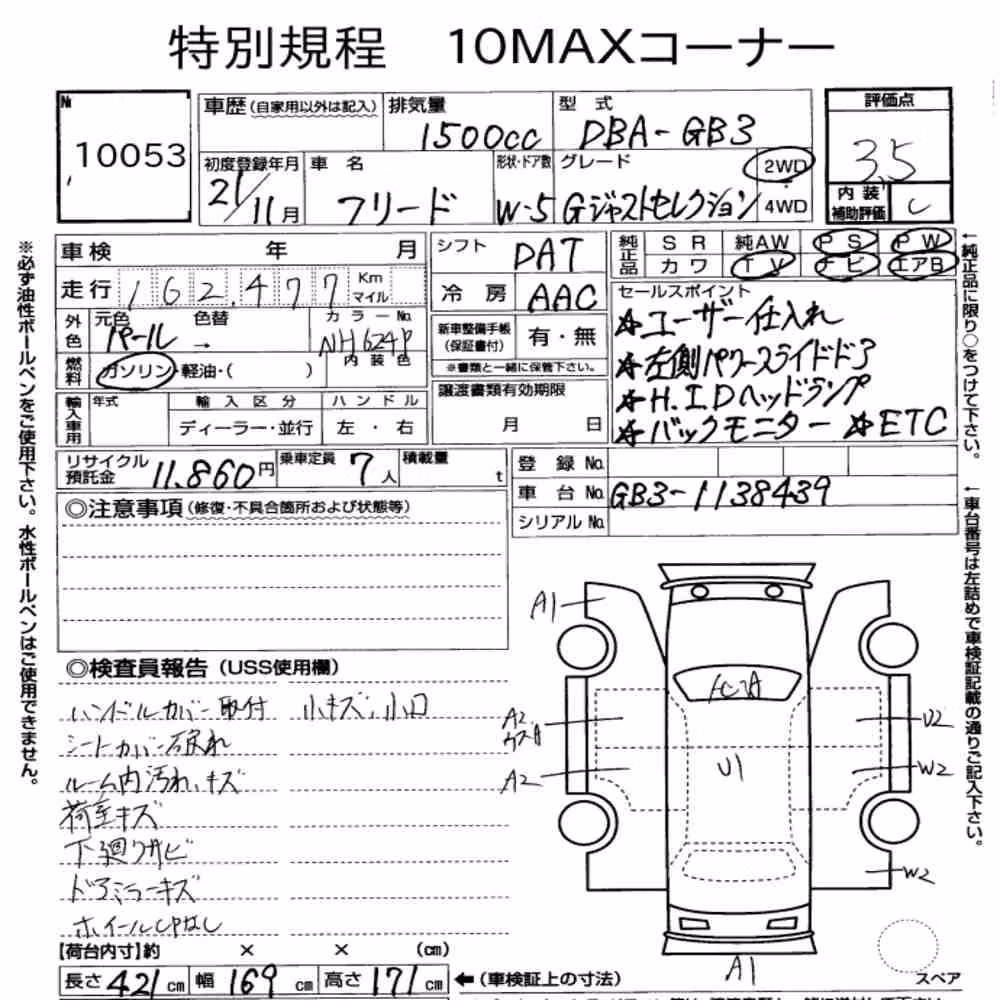 特別規程 10MAXコーナー
№ 10053
車歴(自家用以外は記入) 排気量 1500cc 型式 DBA-GB3
評価点 3.5
初度登録年月 21/11月 車名 フリード 形状・ドア数 W-5 グレード Gジャストセレクション 2WD 4WD
内装補助評価 C
車検 年 月 シフト DAT 純正品 SR 純AW PS PW
カワ TV ナビ エアB
走行 162,477 Km マイル 冷房 AAC
セールスポイント
外色 元色 パール 色替 → カラーNo. NH624P 内装色
新車整備手帳(保証書付) 有・無
※書類と一緒に保管下さい。
☆ユーザー仕入れ
☆左側パワースライドドア
☆H.I.Dヘッドランプ
☆バックモニター ☆ETC
燃料 ガソリン・軽油・( )
譲渡書類有効期限 月 日
輸入車用 年式 輸入区分 ディーラー・並行 ハンドル 左・右
リサイクル預託金 11,860円 乗車定員 7人 積載量 t
登録No.
車台No. GB3-1138439
シリアルNo.
◎注意事項(修復・不具合箇所および状態等)
◎検査員報告(USS使用欄)
ハンドルカバー取付 小キズ、小凹
シートカバー破れ
ルーム内汚れ、キズ
荷室キズ
下廻りサビ
ドアミラーキズ
ホイールCPなし
A1
A2
A2
U1
U2
W2
W2
A1
スペア
【荷台内寸】約 × × (cm)
長さ 421 cm 幅 169 cm 高さ 171 cm ←(車検証上の寸法)
※必ず油性ボールペンをご使用下さい。水性ボールペンはご使用できません。
←純正品に限り○をつけて下さい。
←車台番号は左詰めで車検証記載の通りご記入下さい。